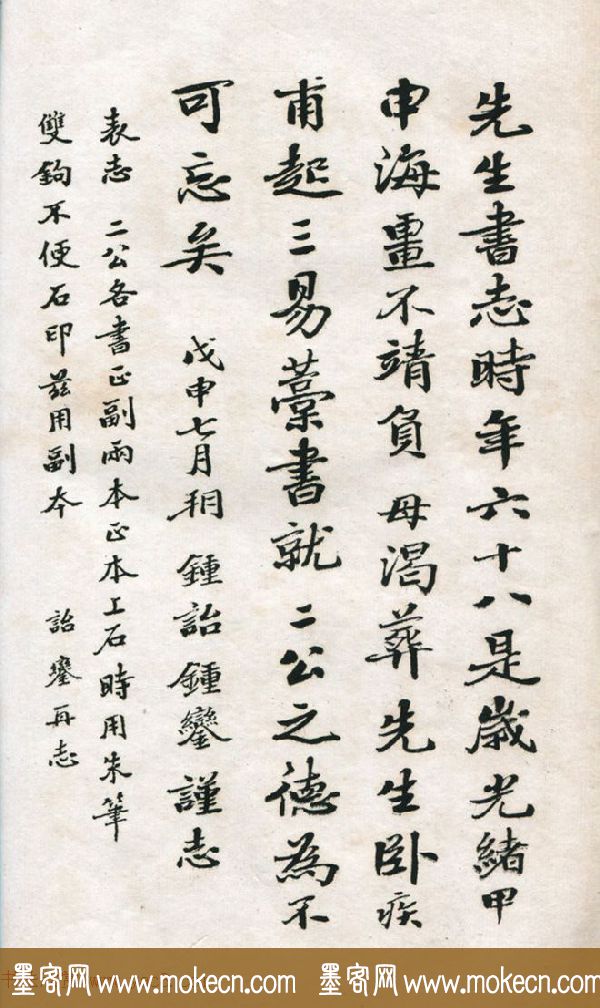 先生書志時年六十八是歲光緒甲
申海畺不靖負 母渴葬先生卧疾
甫起三易藁書就 二公之德為不
可忘矣 戊申七月 鍾詒鍾鑾謹志
表志 二公各書正副兩本正本上石時用朱筆
雙鉤不便石印茲用副本 詒鑾再志
墨客网 www.mokecn.com 墨客网 www.mokecn.com